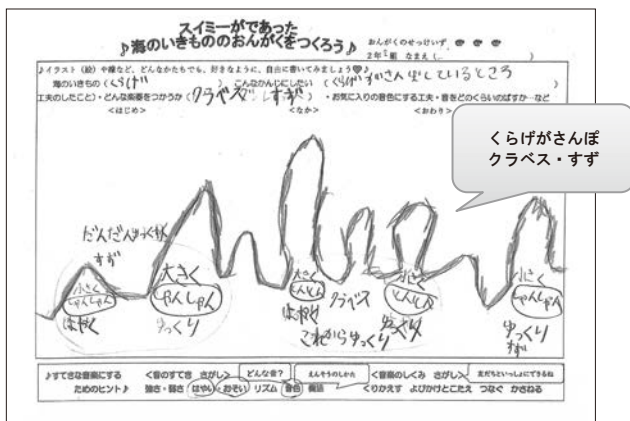 スイミーがであった
♪海のいきもののおんがくをつくろう♪
おんがくのせっけいず
2年 組 なまえ( )
♪イラスト(絵)や線など、どんなかたちでも、好きなように、自由に書いてみましょう♡♪
海のいきもの(くらげ) こんなかんじにしたい(くらげがさんぽしているところ)
工夫のしたこと)・どんな楽器をつかうか(クラベス すず)・お気に入りの音色にする工夫・音をどのくらいのばすか…など
<はじめ> <なか> <おわり>
くらげがさんぽ
クラベス・すず
だんだんゆっくり
すず
小さく
しゃんしゃん
はやく
大きく
しゃんしゃん
ゆっくり
大きく
とんとん
はやく
クラベス
これからゆっくり
小さく
とんとん
ゆっくり
小さく
しゃんしゃん
ゆっくり
すず
♪すてきな音楽にする <音のすてき さがし> どんな音? えんそうのしかた <音楽のしくみ さがし> 友だちといっしょにできるね
ためのヒント♪ 強さ・弱さ はやい・おそい リズム 音色 奏法 くりかえす よびかけとこたえ つなぐ かさねる